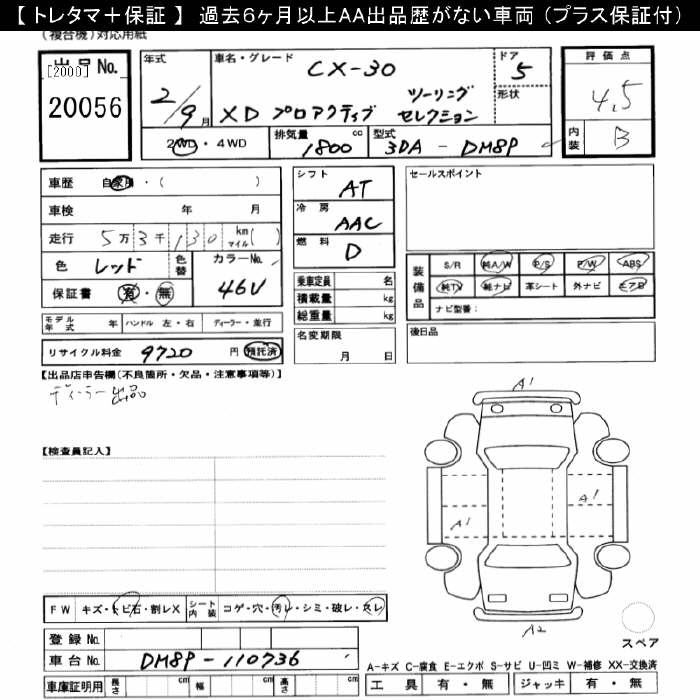 【 トレタマ＋保証 】 過去６ヶ月以上ＡＡ出品歴がない車両 (プラス保証付)
(複合機)対応用紙
出品 No.
[2000]
20056
年式
2/9月
車名・グレード
CX-30
XD プロアクティブ ツーリング セレクション
ドア
5
形状
評価点
4.5
内装
B
2WD・4WD
排気量
1800 cc
型式
3DA - DM8P
車歴 自家用・( )
車検 年 月
走行 5万3千130 km マイル( )
色 レッド 色替 カラーNo. 46V
保証書 有・無
モデル年式 年 ハンドル 左・右 ディーラー・並行
リサイクル料金 9720 円 預託済
シフト AT
冷房 AAC
燃料 D
乗車定員 名
積載量 kg
総重量 kg
名変期限
月 日
セールスポイント
装備品 S/R 純A/W P/S P/W ABS
純TV 純ナビ 革シート 外ナビ エアB
ナビ型番:
後日品
【出品店申告欄(不良箇所・欠品・注意事項等)】
ディーラー出品
【検査員記入】
A1
A1
A1
A2
スペア
FW キズ・トビ石・割レX シート内装 コゲ・穴・汚レ・シミ・破レ・スレ
登録 No.
車台 No. DM8P-110736
車庫証明用 長さ cm 幅 cm 高さ cm
A-キズ C-腐食 E-エクボ S-サビ U-凹ミ W-補修 XX-交換済
工具 有・無 ジャッキ 有・無